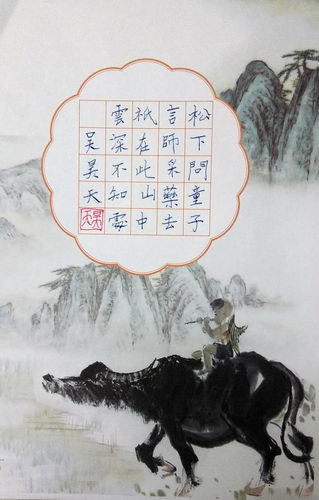 松下問童子
言師采藥去
祇在此山中
雲深不知處
吴昊天